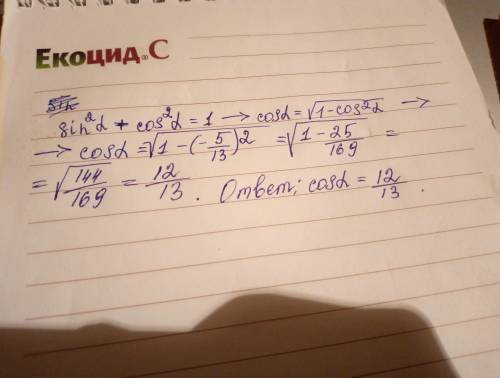 Екоцид® С
sin²α + cos²α = 1 → cosα = √1-cos²α →
→ cosα = √1-(-5/13)² = √1-25/169 =
= √144/169 = 12/13. Ответ: cosα = 12/13.